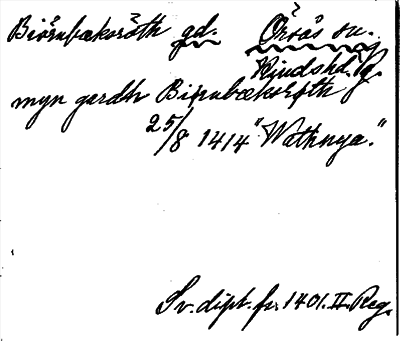 Biörnbæksröth gd. Örsås sn.
Kindshd. Vg.
myn gardh Biörnbæksrøth
25/8 1414 "Wathnya."
Sv. dipl. fr. 1401. II. Reg.